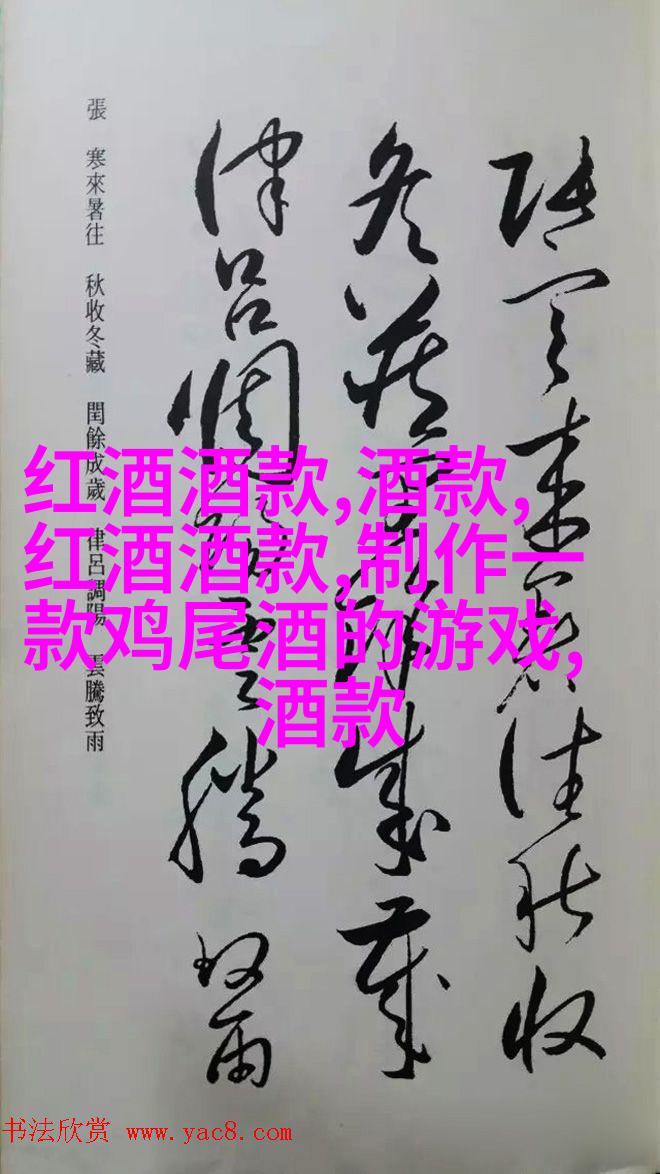 張寒來暑往秋收
冬藏閏餘成歲
律呂調陽雲騰致雨
張 寒來暑往 秋收冬藏 閏餘成歲 律呂調陽 雲騰致雨
红酒酒款,酒款,
红酒酒款,制作一
款鸡尾酒的游戏,
酒款
书法欣赏 www.yac8.com